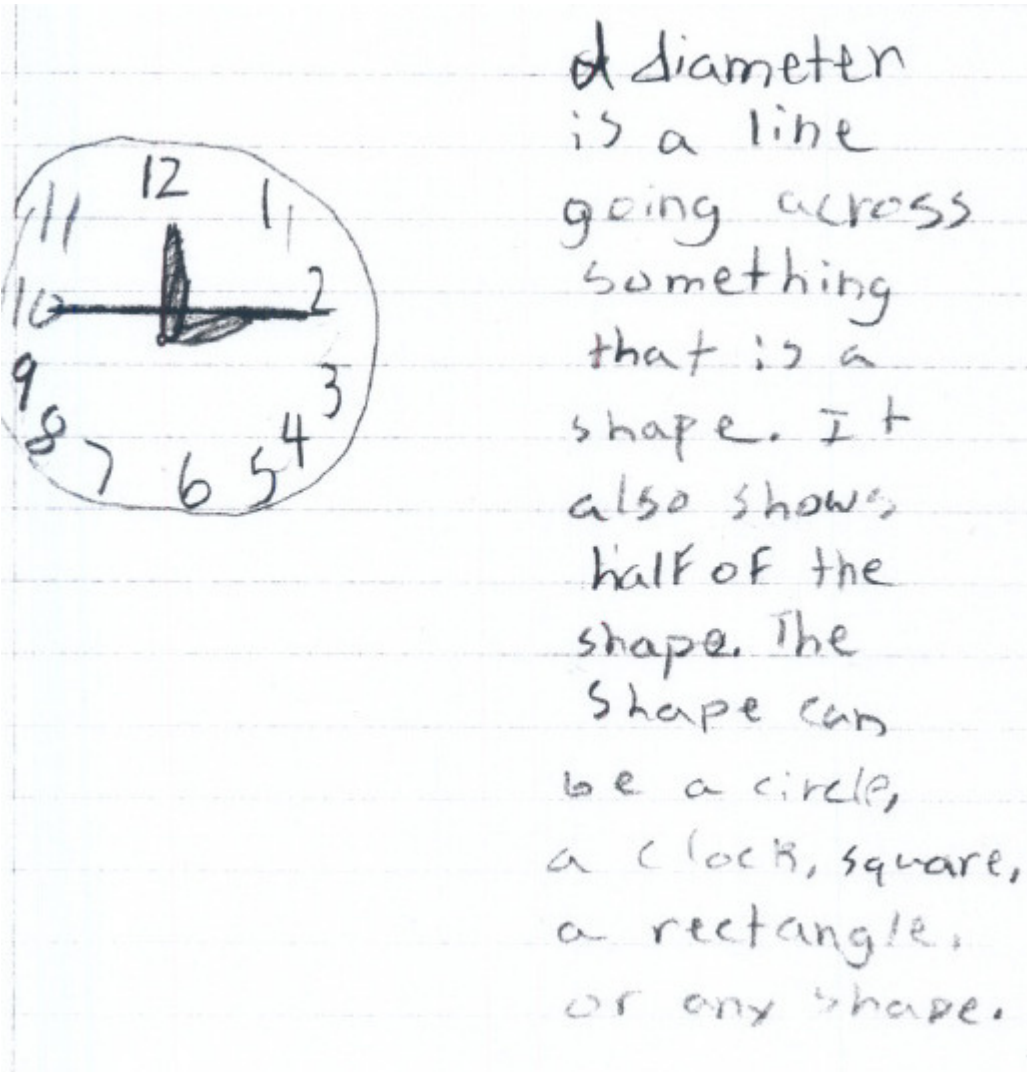 12
11
1
10
2
9
3
8
4
7
5
6
a diameter
is a line
going across
something
that is a
shape. It
also shows
half of the
shape. The
shape can
be a circle,
a clock, square,
a rectangle,
or any shape.